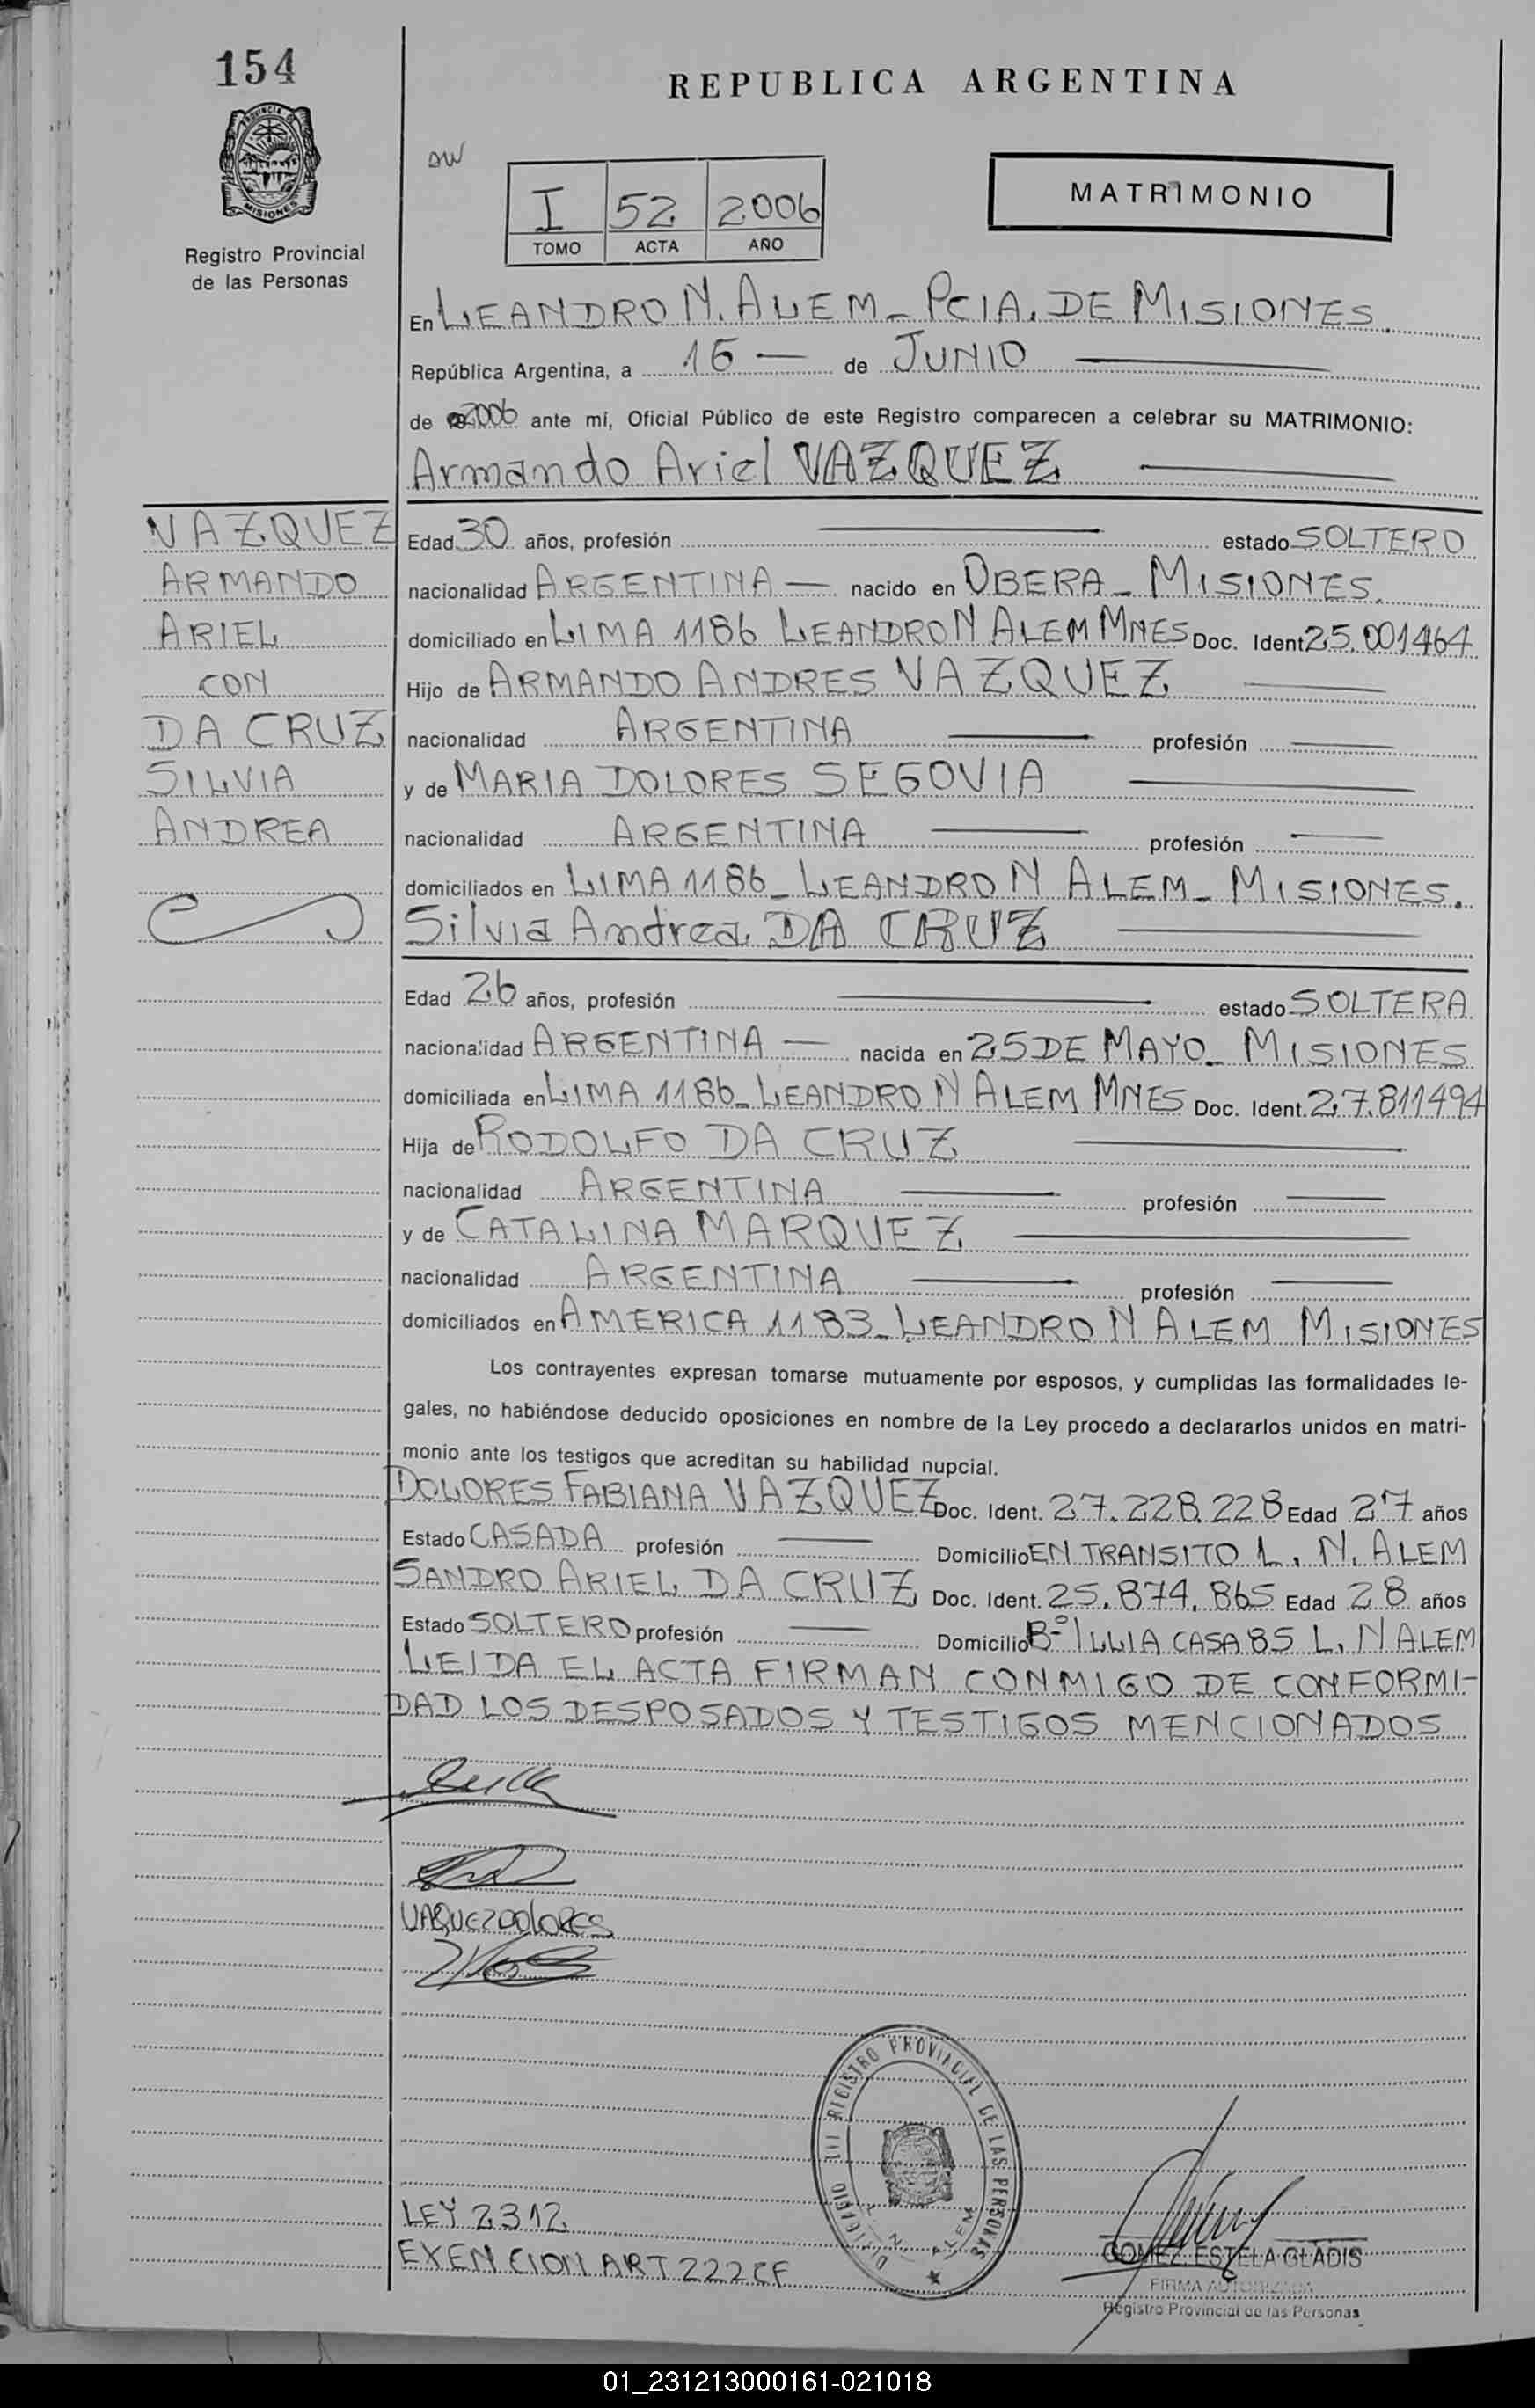 154
REPUBLICA ARGENTINA
PROVINCIA DE
MISIONES
Registro Provincial
de las Personas
I 52 2006
TOMO ACTA AÑO
MATRIMONIO
En LEANDRO N. ALEM - PCIA. DE MISIONES.
República Argentina, a 16 — de JUNIO
de 2006 ante mí, Oficial Público de este Registro comparecen a celebrar su MATRIMONIO:
Armando Ariel VAZQUEZ
VAZQUEZ
ARMANDO
ARIEL
CON
DA CRUZ
SILVIA
ANDREA
Edad 30 años, profesión — estado SOLTERO
nacionalidad ARGENTINA — nacido en OBERA - MISIONES.
domiciliado en LIMA 1186 LEANDRO N ALEM MNES Doc. Ident 25.001464
Hijo de ARMANDO ANDRES VAZQUEZ —
nacionalidad ARGENTINA — profesión —
y de MARIA DOLORES SEGOVIA —
nacionalidad ARGENTINA — profesión —
domiciliados en LIMA 1186 - LEANDRO N ALEM - MISIONES.
Silvia Andrea DA CRUZ —
Edad 26 años, profesión — estado SOLTERA
nacionalidad ARGENTINA — nacida en 25 DE MAYO - MISIONES
domiciliada en LIMA 1186 - LEANDRO N ALEM MNES Doc. Ident. 27.811494
Hija de RODOLFO DA CRUZ —
nacionalidad ARGENTINA — profesión —
y de CATALINA MARQUEZ —
nacionalidad ARGENTINA — profesión —
domiciliados en AMERICA 1183 - LEANDRO N ALEM MISIONES
Los contrayentes expresan tomarse mutuamente por esposos, y cumplidas las formalidades le-
gales, no habiéndose deducido oposiciones en nombre de la Ley procedo a declararlos unidos en matri-
monio ante los testigos que acreditan su habilidad nupcial.
DOLORES FABIANA VAZQUEZ Doc. Ident. 27.228.228 Edad 27 años
Estado CASADA profesión — Domicilio EN TRANSITO L. N. ALEM
SANDRO ARIEL DA CRUZ Doc. Ident. 25.874.865 Edad 28 años
Estado SOLTERO profesión — Domicilio Bº ILLIA CASA 85 L. N ALEM
LEIDA EL ACTA FIRMAN CONMIGO DE CONFORMI-
DAD LOS DESPOSADOS Y TESTIGOS MENCIONADOS
VAQUEZ DOlORES
REGISTRO PROVINCIAL DE LAS PERSONAS
L. N. ALEM
LEY 2312
EXENCION ART 222 CF
GOMEZ ESTELA GLADIS
FIRMA AUTORIZADA
Registro Provincial de las Personas
01_231213000161-021018